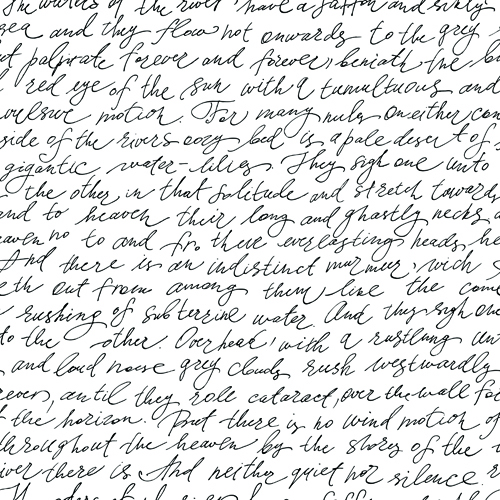 The waters of the river have a saffron and sickly
sea and they flow not onwards to the grey
palpirate forever and forever, beneath the
red eye of the sun with a tumultuous and
motion. For many miles on either
side of the rivers oozy bed is a pale desert of
gigantic water-lilies. They sigh one unto
the other in that solitude and stretch towards
and to heaven their long and ghastly necks
heaven no to and fro there everlasting heads, he
And there is an indistinct murmur, wich
eth out from among them like the
rushing of subterrine water. And they sigh one
to the other. Overhead, with a rustling
and loud noise grey clouds rush westwardly
until they role cataract, over the wall
the horizon. But there is no wind motion of
throughout the heaven by the shores of the
there is And neither quiet nor silence